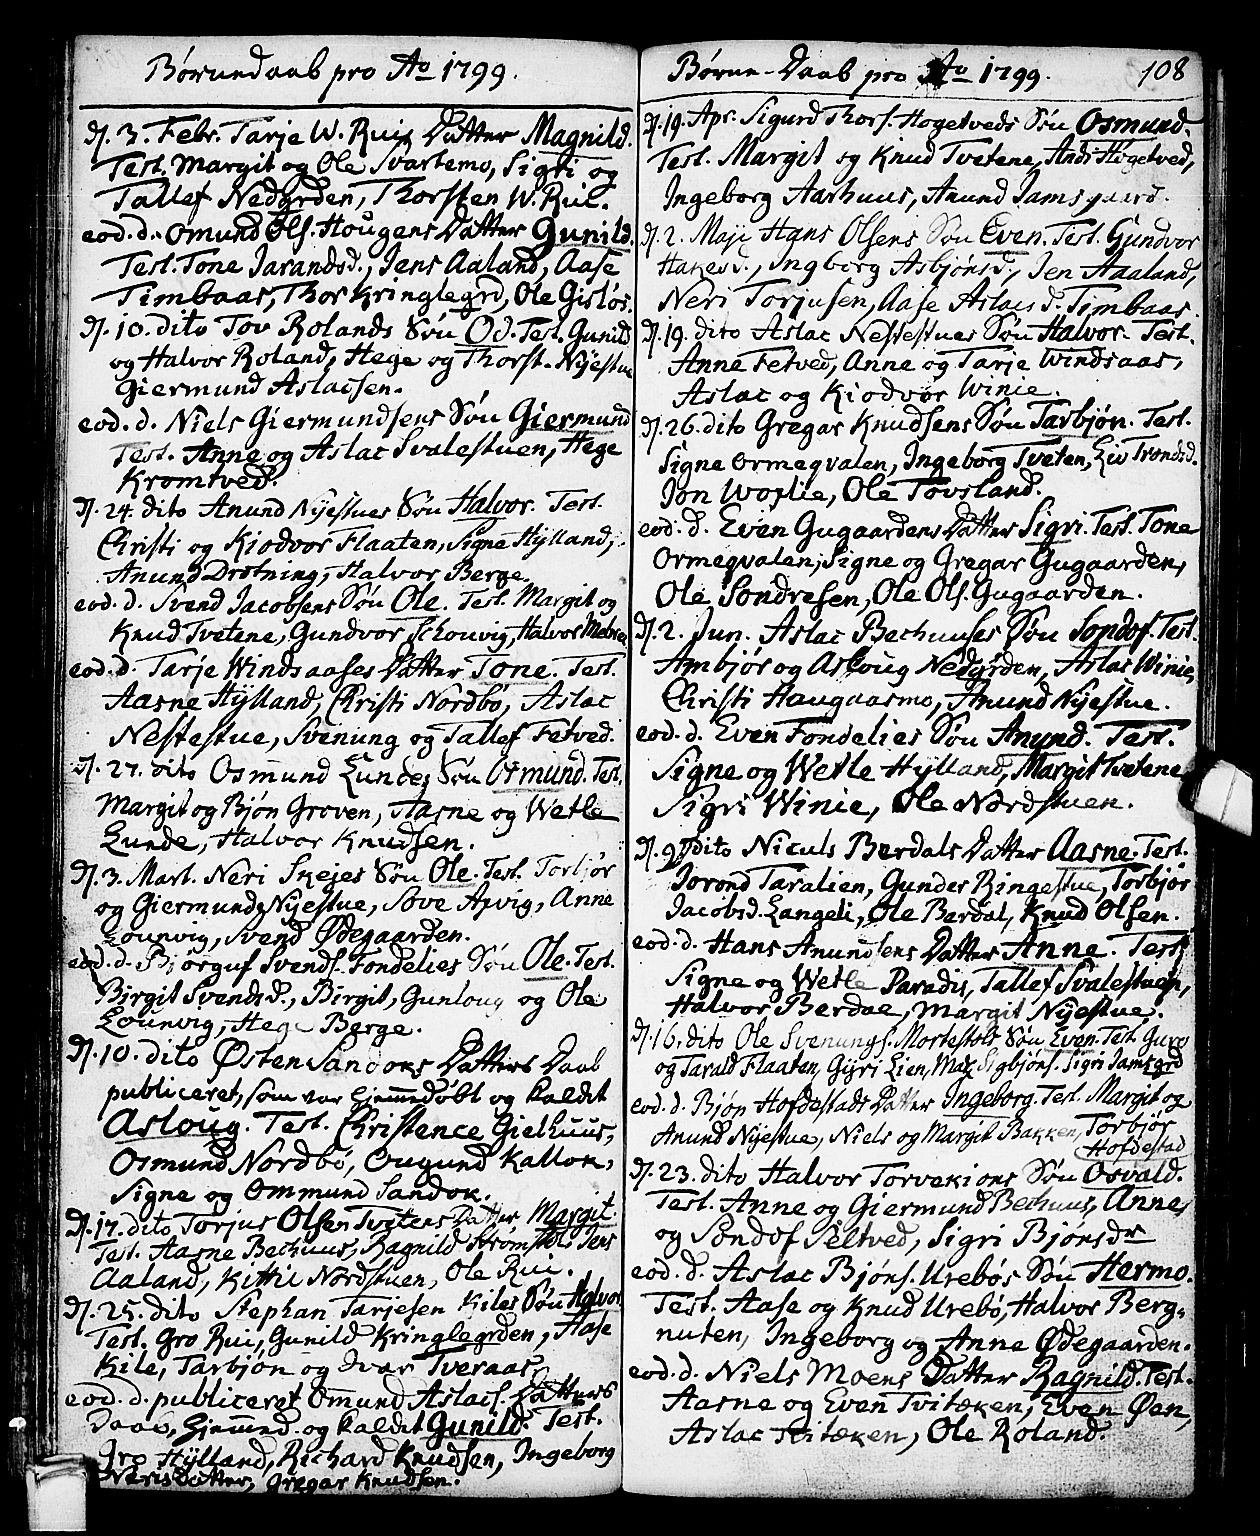 Børnedaab pro Ao 1799.
D. 3. Febr. Tarje W. Rui's Datter Magnild.
Test. Margit og Ole Svartemo, Sigri og
Tallef Nedgrden, Thorsten W. Rui.
eod. d. Osmund Ols. Hougens Datter Gunild.
Test. Tone Jarandsd., Jens Aaland, Aase
Timbaas, Thor Kringlegrd, Ole Gisløs.
D. 10. dito Tov Rolands Søn Od. Test. Gunild
og Halvor Roland, Hege og Thorst. Nÿestue
Giermund Aslacsen.
eod. d. Niels Giermundsens Søn Giermund
Test. Anne og Aslac Svalestuen, Hege
Kromtved.
D. 24. dito Anund Nÿestues Søn Halvor. Test.
Christi og Kiodvor Flaaten, Signe Hÿlland,
Anund Drotning, Halvor Berge.
eod. d. Svend Jacobsens Søn Ole. Test. Margit og
Knud Tvetene, Gundvor Schouvig, Halvor
eod. d. Tarje Windsaases Datter Tone. Test.
Aasne Hÿlland, Christi Nordbø, Aslac
Nestestue, Svenung og Tallef Fetved.
D. 27. dito Osmund Lundes Søn Osmund. Test.
Margit og Bjøn Groven, Aasne og Wetle
Lunde, Halvor Knudsen.
D. 3. Mart. Neri Skejes Søn Ole. Test. Torbjør
og Giermund Nÿestue, Sove Apvig, Anne
Lounvig, Svend Ødegaarden.
eod. d. Bjørguf Svends. Fondelies Søn Ole. Test.
Birgit Svendsd., Birgit, Gunloug og Ole
Lounvig, Hege Berge.
D. 10. dito Østen Sandoks Datters Daab
publiceret, som var hjemmedøbt og kaldet
Asloug. Test. Christence Gielhuus,
Osmund Nordbø, Ougund Kallok,
Signe og Ommund Sandok.
D. 17. dito Torjus Olsen Tvitens Datter Margit.
Test. Aasne Bechuus, Ragnild Strømstol, Jens
Aaland, Kittil Nordstuen, Ole Rui.
D. 25. dito Stephan Tarjesen Kiles Søn Halvor.
Test. Gro Rui, Gunild Kringlegrden, Aase
Kile, Tarbjøn og Ivar Tveraas.
eod. d. publiceret Omund Aslacs. Datters
Daab, hjemmed. og kaldet Gunild. Test.
Gro Hÿlland, Richard Knudsen, Ingeborg
Neris Datter, Gregar Knudsen.
Børne-Daab pro Ao 1799. 108
D. 19. Apr. Sigurd Thors. Hogetveds Søn Osmund.
Test. Margit og Knud Tvetene, Hogetved,
Ingeborg Aarhuus, Anund Jamsgaard.
D. 2. Maji Hans Olsens Søn Even. Test. Gundvor
Hakesd., Ingborg Asbjønsd., Jen Aaland,
Neri Torjusen, Aase Aslacs d. Timbaas.
D. 19. dito Aslac Nestestues Søn Halvor. Test.
Anne Fetved, Anne og Tarje Windsaas,
Aslac og Kiodvor Winie.
D. 26. dito Gregar Knudsens Søn Tarbjøn. Test.
Signe Ormeqvalen, Ingeborg Tveten, Liv Trondsd.
Jon Woslie, Ole Tovsland.
eod. d. Even Gugaardens Datter Sigri. Test. Tone
Ormeqvalen, Signe og Gregar Gugaarden,
Ole Sondresen, Ole Ols. Gugaarden.
D. 2. Jun. Aslac Bechuuses Søn Sondof. Test.
Ambjør og Asloug Nedgrden, Aslac Winie,
Christi Haugaasmo, Anund Nÿestue.
eod. d. Even Fondelies Søn Anund. Test.
Signe og Wetle Hÿlland, Margit Tvetene,
Sigri Winie, Ole Nordstuen.
D. 9. dito Niculs Berdals Datter Aasne. Test.
Jorond Taralien, Gunder Ringestue, Torbjør
Jacobsd. Langeli, Ole Berdal, Knud Olsen.
eod. d. Hans Anundsens Datter Anne. Test.
Signe og Wetle Paradis, Tallef Svalestuen,
Halvor Berdal, Margit Nÿestue.
D. 16. dito Ole Svenungs. Mortestols Søn Even. Test. Guro
og Tarald Flaaten, Gÿri Lien, Sigbjøns. Sigri Jamsgrd
eod. d. Bjøn Hofdestads Datter Ingeborg. Test. Margit og
Anund Nÿestue, Niels og Margit Bakken, Torbjør
Hofdestad
D. 23. dito Halvor Torvekions Søn Osvald.
Test. Anne og Giermund Bechuus, Anne
og Sondof Seltved, Sigri Bjønsdr
eod. d. Aslac Bjøns. Urebøs Søn Hermo.
Test. Aase og Knud Urebø, Halvor Berg-
nuten, Ingeborg og Anne Ødegaarden.
eod. d. Niels Moens Datter Ragnild. Test.
Aasne og Even Tvitæken, Even Øen,
Aslac Tvitæken, Ole Roland.